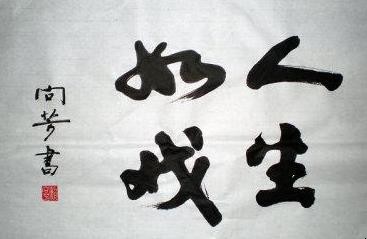 人生
如戏
芳書